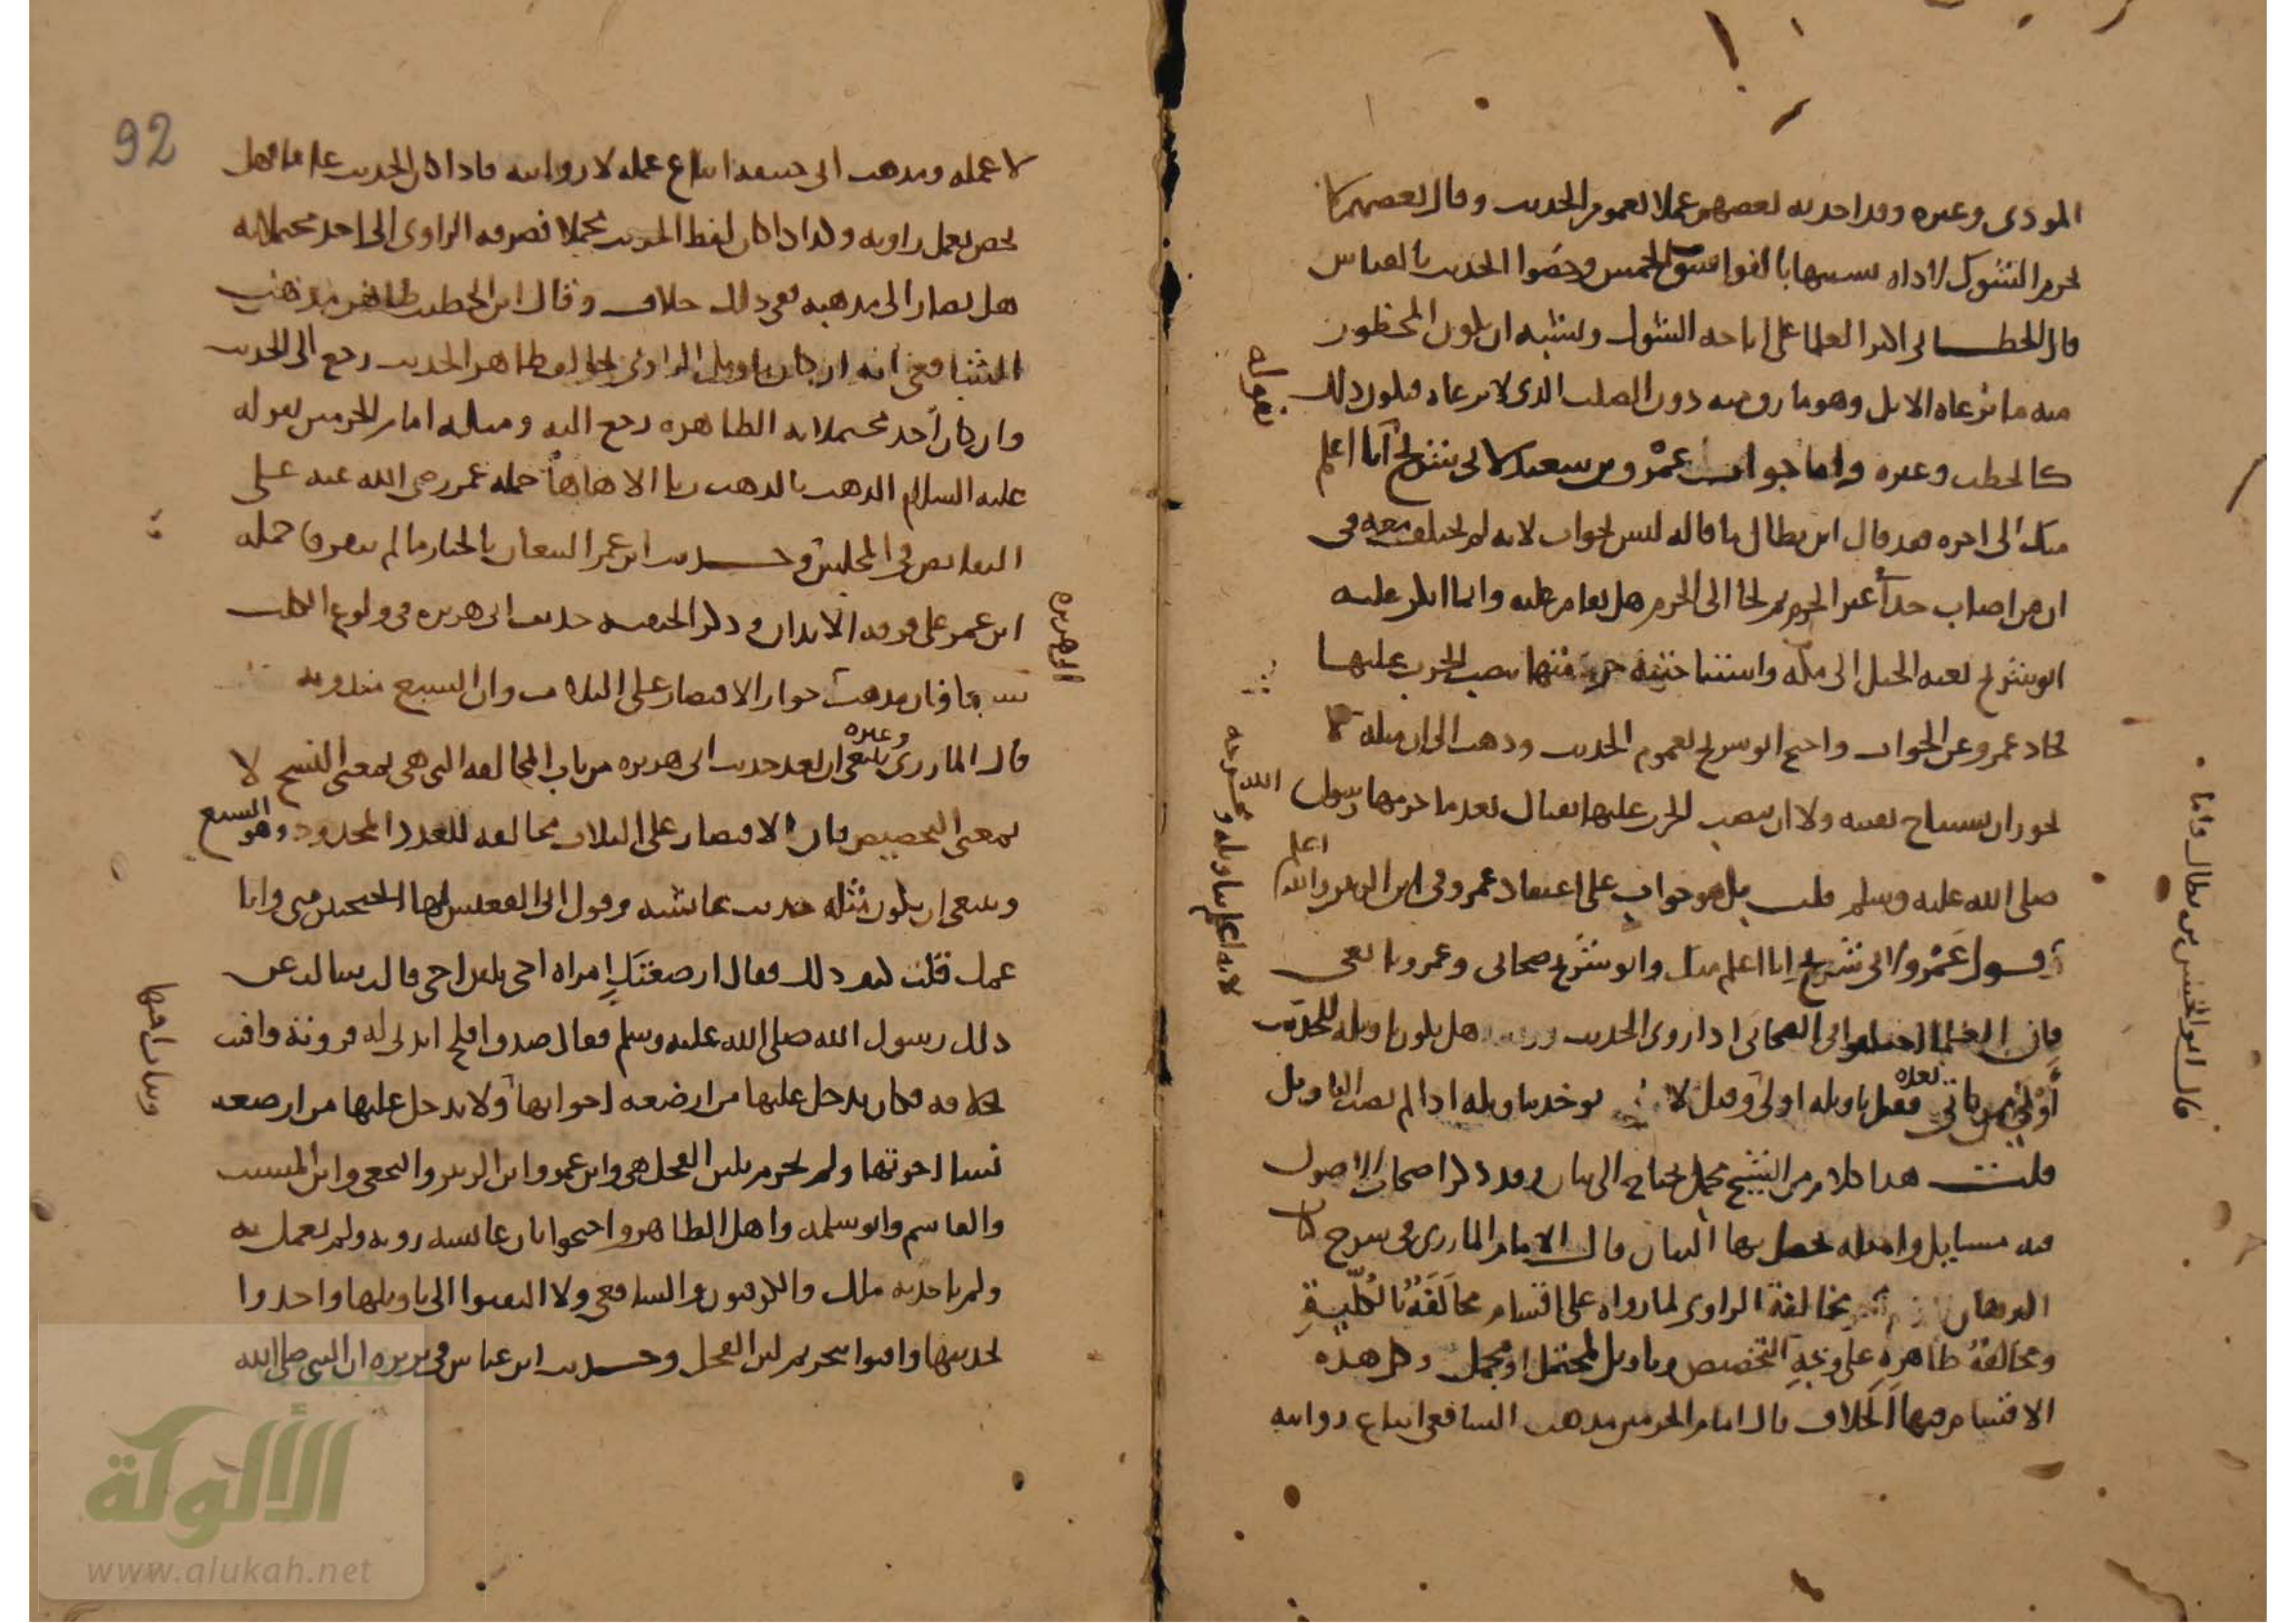 المودى وغيره وقد اخذ به بعضهم عملا بعموم الحديث وقال بعضهم لا
يحرم الشوك لاذاه تشبيها بالفواسق الخمس وخصوا الحديث بالقياس
قال الخطابى اكثر العلما على اباحه الشوك ويشبه ان يكون المحظور
منه ما ترعاه الابل وهو ما رق منه دون الصلب الذى لا ترعاه فيكون ذلك
كالحطب وغيره واما جواب عَمْرو بن سعيد لابى شريح انا اعلم
بقوله
منك الى اخره فقد قال ابن بطال ما قاله ليس بجواب لانه لم يختلف معه فى
ان من اصاب حدًا غير الحرم ثم لجا الى الحرم هل يقام عليه وانما انكر عليه
ابو شريح بعثه الخيل الى مكه واستباحته حرمتها بنصب الحرب عليها
فحاد عمرو عن الجواب واحتج ابو شريح بعموم الحديث وذهب الى ان مكه لا
يجوز ان يستباح بعينه ولا ان ينصب الحرب عليها بقتال بعد ما حرمها رسول الله
صلى الله عليه وسلم قلت بل هو جواب على اعتقاد عمرو فى ابن الزبير والله اعلم
قال ابو الحسن بن بطال واما
قول عَمْرو لابى شُريح انا اعلم منك وابو شُريح صحابى وعمرو تابعى
فان العلما اختلفوا فى الصحابى اذا روى الحديث هل يكون تاويله للحديث
أولى من تاويل من ياتى بعده فقيل تاويله اولى وقيل لا يوخذ بتاويله اذا لم يصب التاويل
لانه اعلم بتاويله ومخرجه
قلت هذا كلام من الشيخ مجمل يحتاج الى بيان وقد ذكر اصحاب الاصول
فيه مسايل وامثله يحصل بها البيان قال الامام المازرى فى شرح كتاب
البرهان مخالفة الراوى لما رواه على اقسام مخالَفَةٌ بالكُلّيةِ
ومخالفةٌ ظاهرِه على وَجْهِ التخصيص وتاويل لمحتمل او مجمل وكل هذه
الاقسام فيها الخلاف قال امام الحرمين مذهب الشافعى اتباع روايته
92
لا عمله ومذهب ابى حنيفه اتباع عمله لا روايته فاذا كان الحديث عاما فهل
يخص بعمل راويه وكذا اذا كان لفظ الحديث مجملا فصرفه الراوى الى احد محتملاته
هل يصار الى مذهبه ففى ذلك خلاف وقال ابن الخطيب ظاهر مذهب
الشافعى انه ان كان تاويل الراوى يخالف ظاهر الحديث رجع الى الحديث
وان كان أحد محتملاته الظاهره رجع اليه ومثله امام الحرمين بقوله
عليه السلام الذهب بالذهب ربا الا هاوها حمله عمر رضى الله عنه على
التقابض فى المجلس وحديث ابن عمر البيعان بالخيار ما لم يتفرقا حمله
ابن عمر على فرقه الابدان وذكر الحنفيه حديث ابى هريره فى ولوغ الكلب
ابو هريره
سبعا وان مذهبه جواز الاقتصار على الثلاث وان السبع مندوبه
قال المازرى وغيره ينبغى ان يعد حديث ابى هريره من باب المخالفه التى هى بمعنى النسخ لا
بمعنى التخصيص فان الاقتصار على الثلاث مخالفه للعدد المحدود وهو السبع
وينبغى ان يكون مثله حديث عايشه وقول ابى القعيس لها اتحتجبين منى وانا
عمك قلت كيف ذلك فقال ارضعتك امراه اخى بلبن اخى قالت سالت عن
ذلك رسول الله صلى الله عليه وسلم فقال صدق افلح ائذنى له فروته وافتت
بخلافه فكان يدخل عليها من ارضعه اخواتها ولا يدخل عليها من ارضعه
وبنات اختها
نسا اخوتها ولم يحرم بلبن الفحل هى وابن عمر وابن الزبير والنخعى وابن المسيب
والقاسم وابو سلمه واهل الظاهر واحتجوا بان عايشه روته ولم تعمل به
ولم ياخذ به ملك والكوفيون والشافعى ولا التفتوا الى تاويلها واخذوا
بحديثها وافتوا بتحريم لبن الفحل وحديث ابن عباس فى بريره ان النبى صلى الله
الألوكة
www.alukah.net